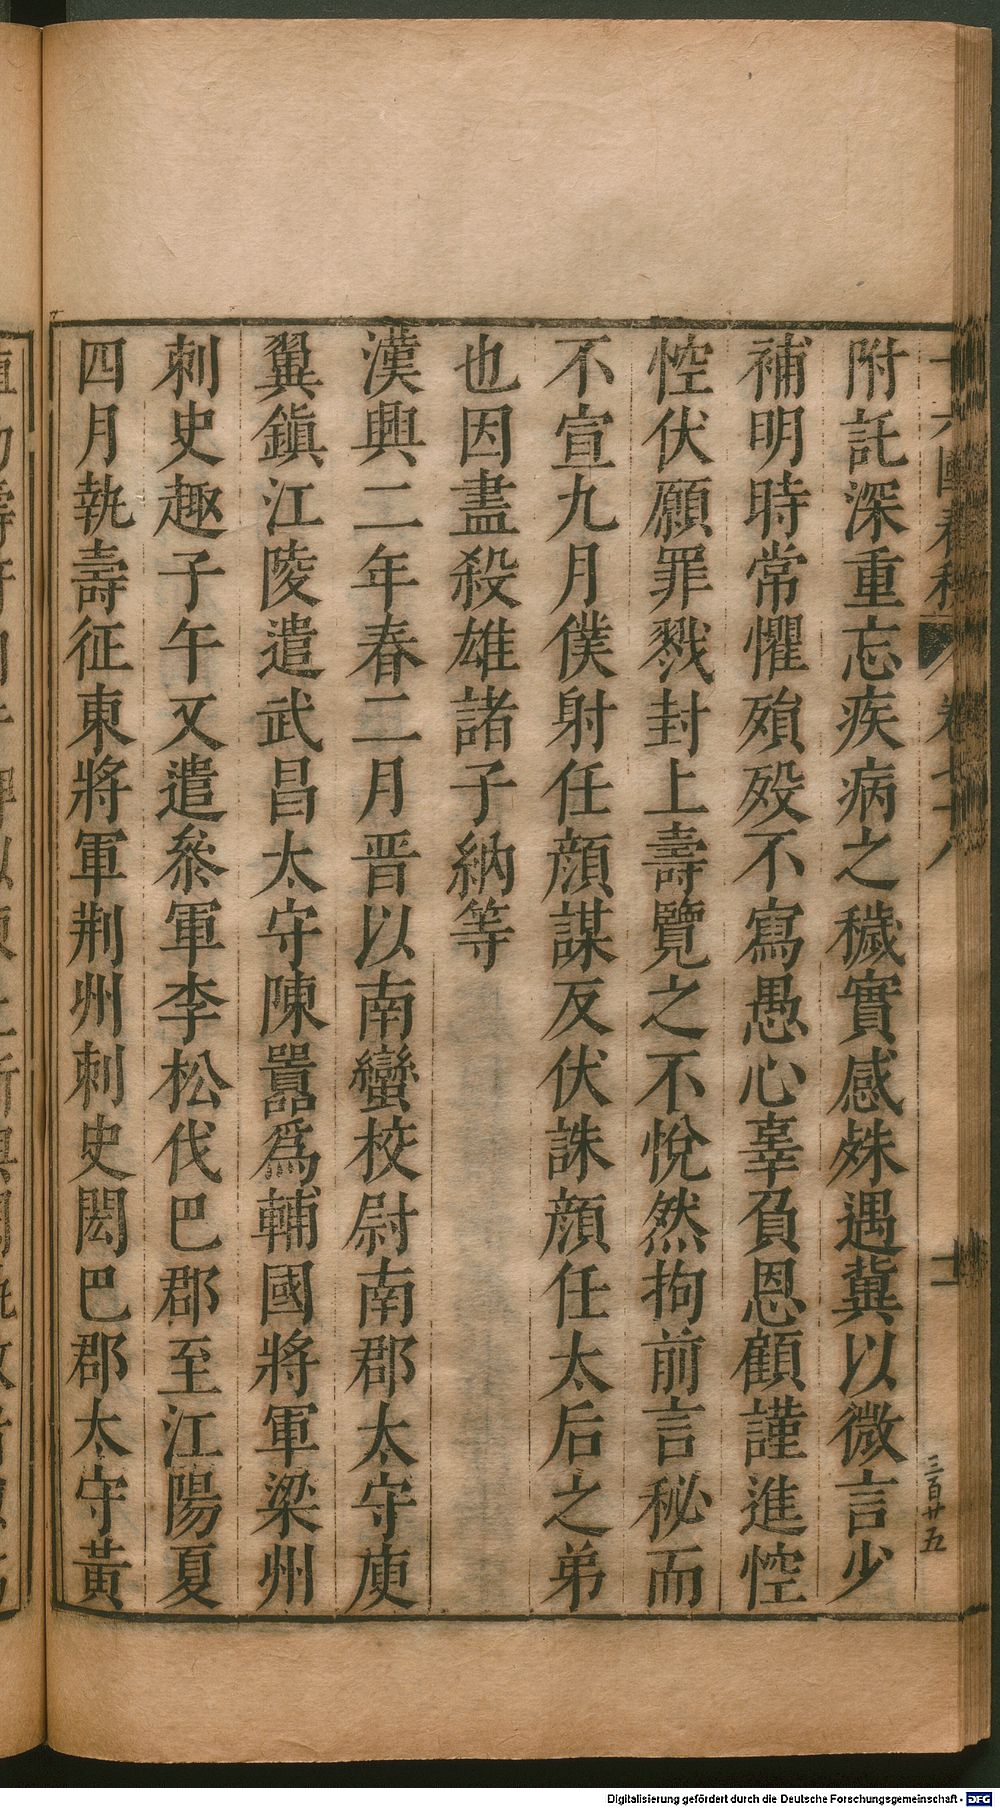 附託深重忘疾病之穢實感殊遇冀以微言少
補明時常懼殞歿不寫愚心辜負恩顧謹進悾
悾伏願罪戮封上壽覽之不悅然拘前言秘而
不宣九月僕射任顏謀反伏誅顏任太后之弟
也因盡殺雄諸子納等
漢興二年春二月晋以南蠻校尉南郡太守庾
翼鎮江陵遣武昌太守陳囂爲輔國將軍梁州
刺史趣子午又遣叅軍李松伐巴郡至江陽夏
四月執壽征東將軍荆州刺史閎巴郡太守黃
三百廿五
Digitalisierung gefördert durch die Deutsche Forschungsgemeinschaft - DFG